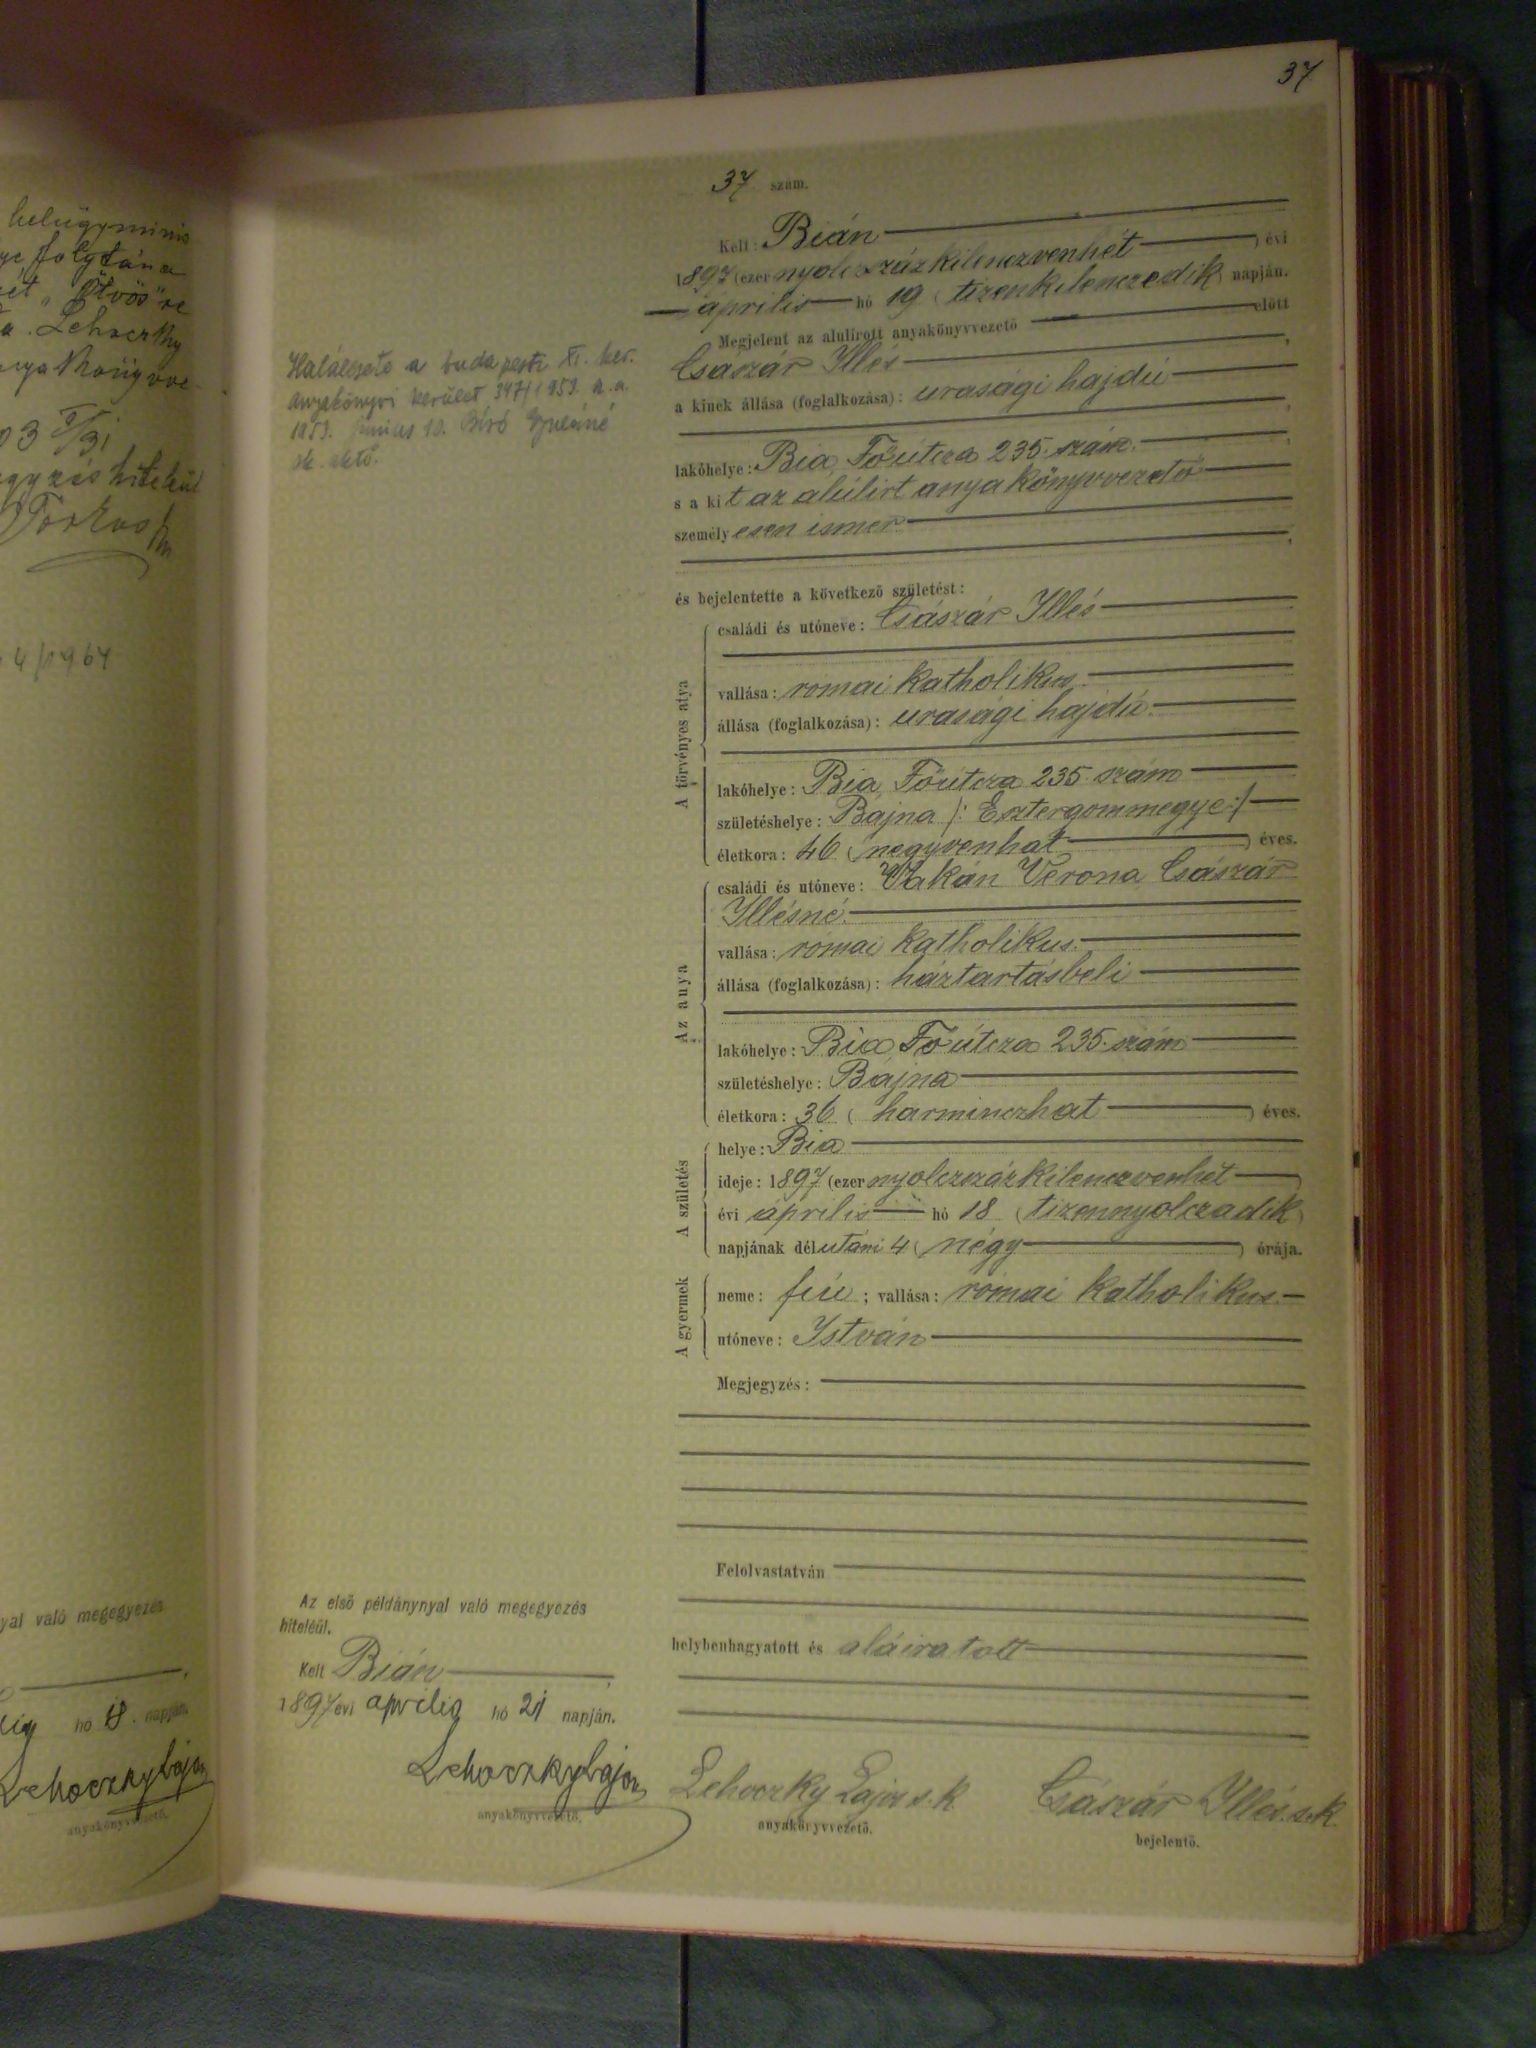 37
helügyminis
folytán a
"Ötvös" re
a. Lehoczky
anyakönyvve
03 V/31
egyzés hiteléül
Farkas
4/1964
nyal való megegyezés
hó 18. napján.
Lehoczky Lajos
anyakönyvvezető.
Halálesete a budapesti XI. ker.
anyakönyvi kerület 347/1953. a.a.
1953. június 10. Bíró Gyuláné
sk.
Az első példánynyal való megegyezés
hiteléül.
Kelt Bián
1897 évi április hó 21 napján.
Lehoczky Lajos
anyakönyvvezető.
37 szám.
Kelt: Bián
1897 (ezer nyolczszázkilenczvenhét) évi
április hó 19 (tizenkilenczedik) napján.
Megjelent az alulirott anyakönyvvezető előtt
Császár Illés,
a kinek állása (foglalkozása): urasági hajdú
lakóhelye: Bia, Főútcza 235. szám.
s a kit az alúlirt anyakönyvvezető
személyesen ismer
és bejelentette a következő születést:
A törvényes atya
családi és utóneve: Császár Illés
vallása: római katholikus
állása (foglalkozása): urasági hajdú.
lakóhelye: Bia, Főútcza 235. szám
születéshelye: Bajna /: Esztergommegye:/
életkora: 46 (negyvenhat) éves.
Az anya
családi és utóneve: Verona Császár
Illésné.
vallása: római katholikus.
állása (foglalkozása): háztartásbeli
lakóhelye: Bia, Főútcza 235. szám
születéshelye: Bajna
életkora: 36 (harminczhat) éves.
A születés
helye: Bia
ideje: 1897 (ezer nyolczszázkilenczvenhét)
évi április hó 18 (tizennyolczadik)
napjának délutáni 4 (négy) órája.
A gyermek
neme: fiú; vallása: római katholikus.
utóneve: István
Megjegyzés:
Felolvastatván
helybenhagyatott és aláiratott
Lehoczky Lajos s.k
anyakönyvvezető.
Császár Illés. s.k.
bejelentő.